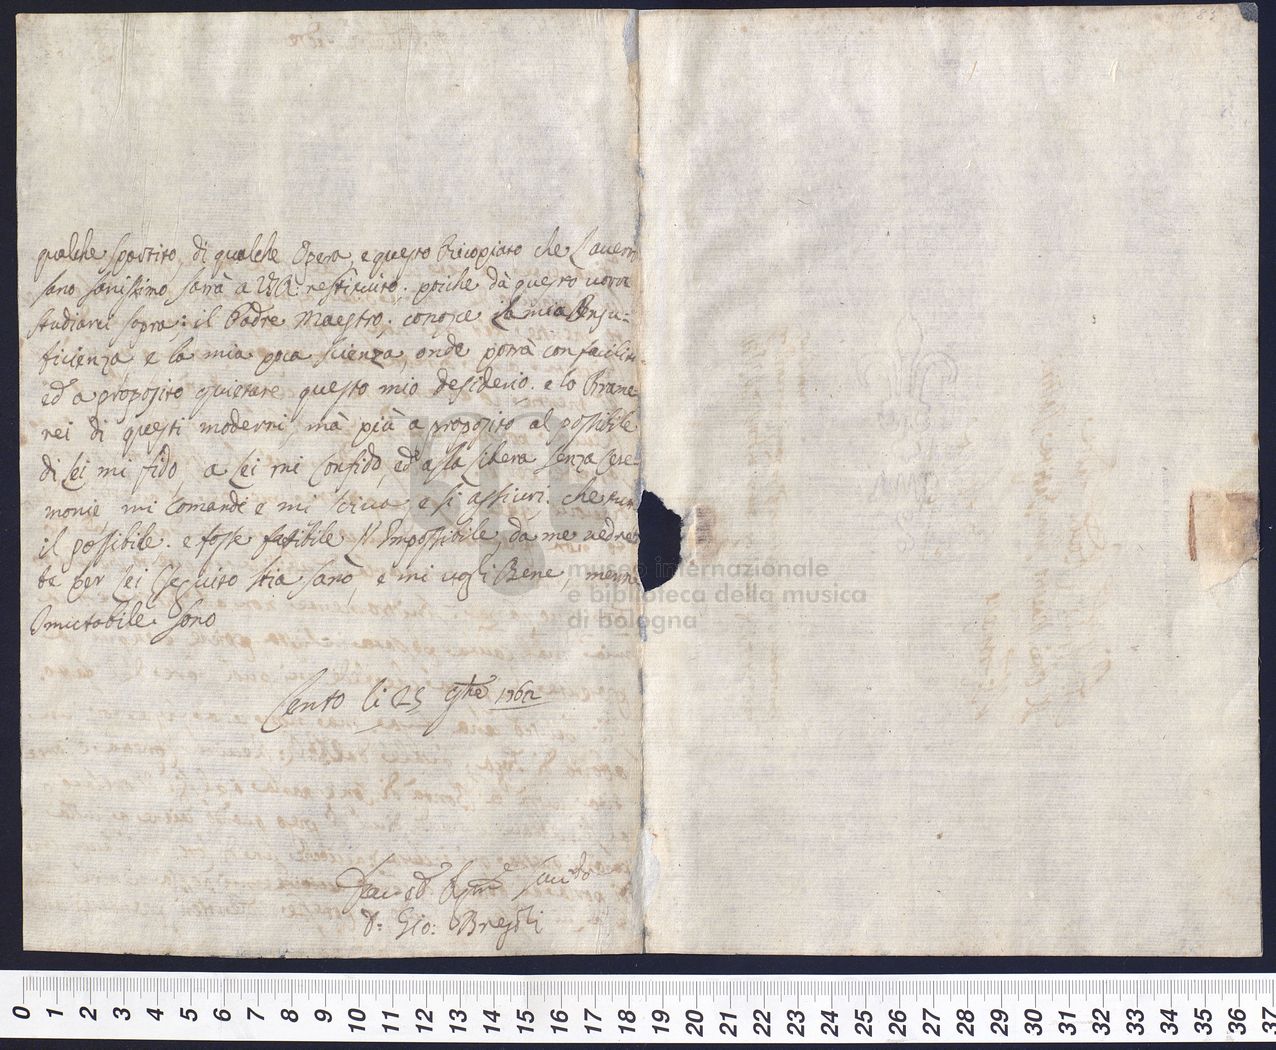 qualche spartito, di qualche Opera, e questo Ricopiato che L'averò
sano sanissimo sarà a V.R. restituito: poiche dà questo vorrei
studiarei sopra; il Padre Maestro. conosce la mia Insu=
ficienza, e la mia poca scienza, onde potrà con facilità
ed a proposito quietare questo mio desiderio. e lo
rei di questi moderni, mà più a proposito al possibile
di Lei mi fido, a Lei mi confido, ed alla libera senza Cere=
monie mi comandi e mi scriva e si assicuri. che
il possibile. e fosse fatibile l'Impossibile da me
be per Lei Eseguito stia sano, e mi vogli Bene, mentre
Imutabile sono
Cento li 25 9bre 1762
83
museo internazionale
e biblioteca della musica
di bologna
0 1 2 3 4 5 6 7 8 9 10 11 12 13 14 15 16 17 18 19 20 21 22 23 24 25 26 27 28 29 30 31 32 33 34 35 36 37